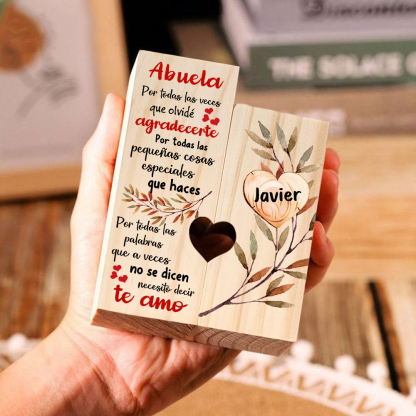 Abuela
Por todas las veces
que olvidé
agradecerte
Por todas las
pequeñas cosas
especiales
que haces
Por todas las
palabras
que a veces
no se dicen
necesito decir
te amo
Javier
THE SOLACE O